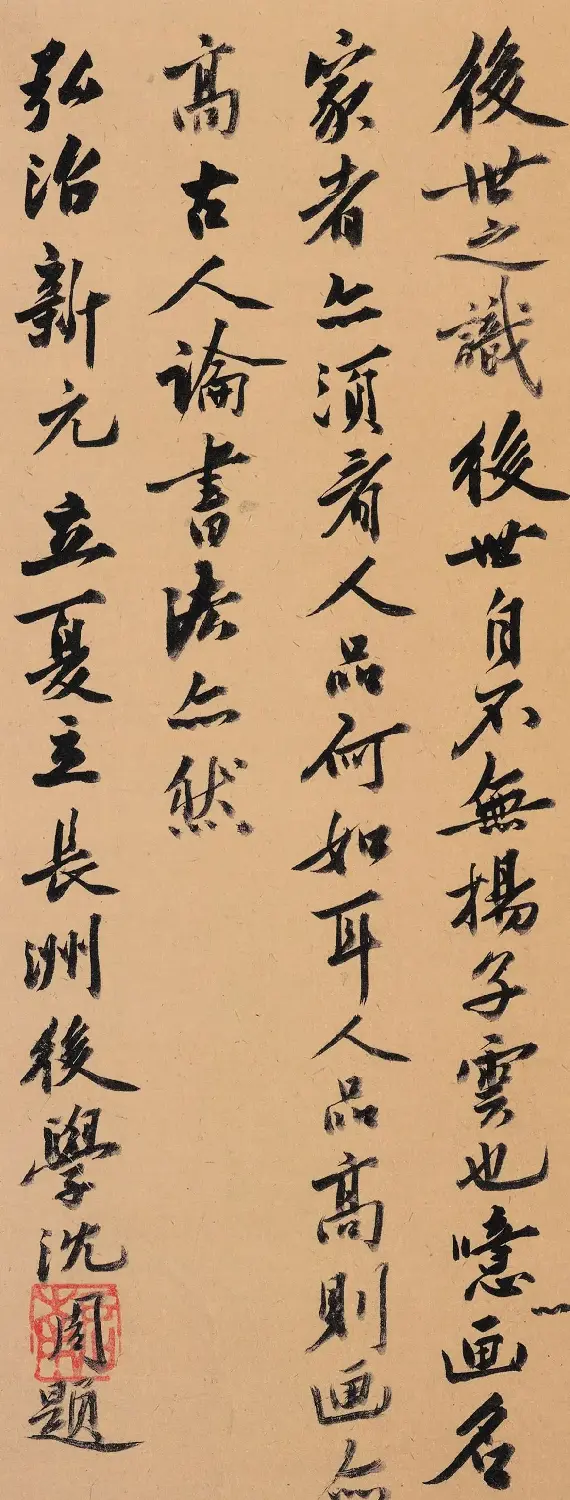 後世之識後世自不無揚子雲也噫画名
家者亦須看人品何如耳人品高則画亦
高古人論書法亦然
弘治新元立夏立長洲後學沈周題